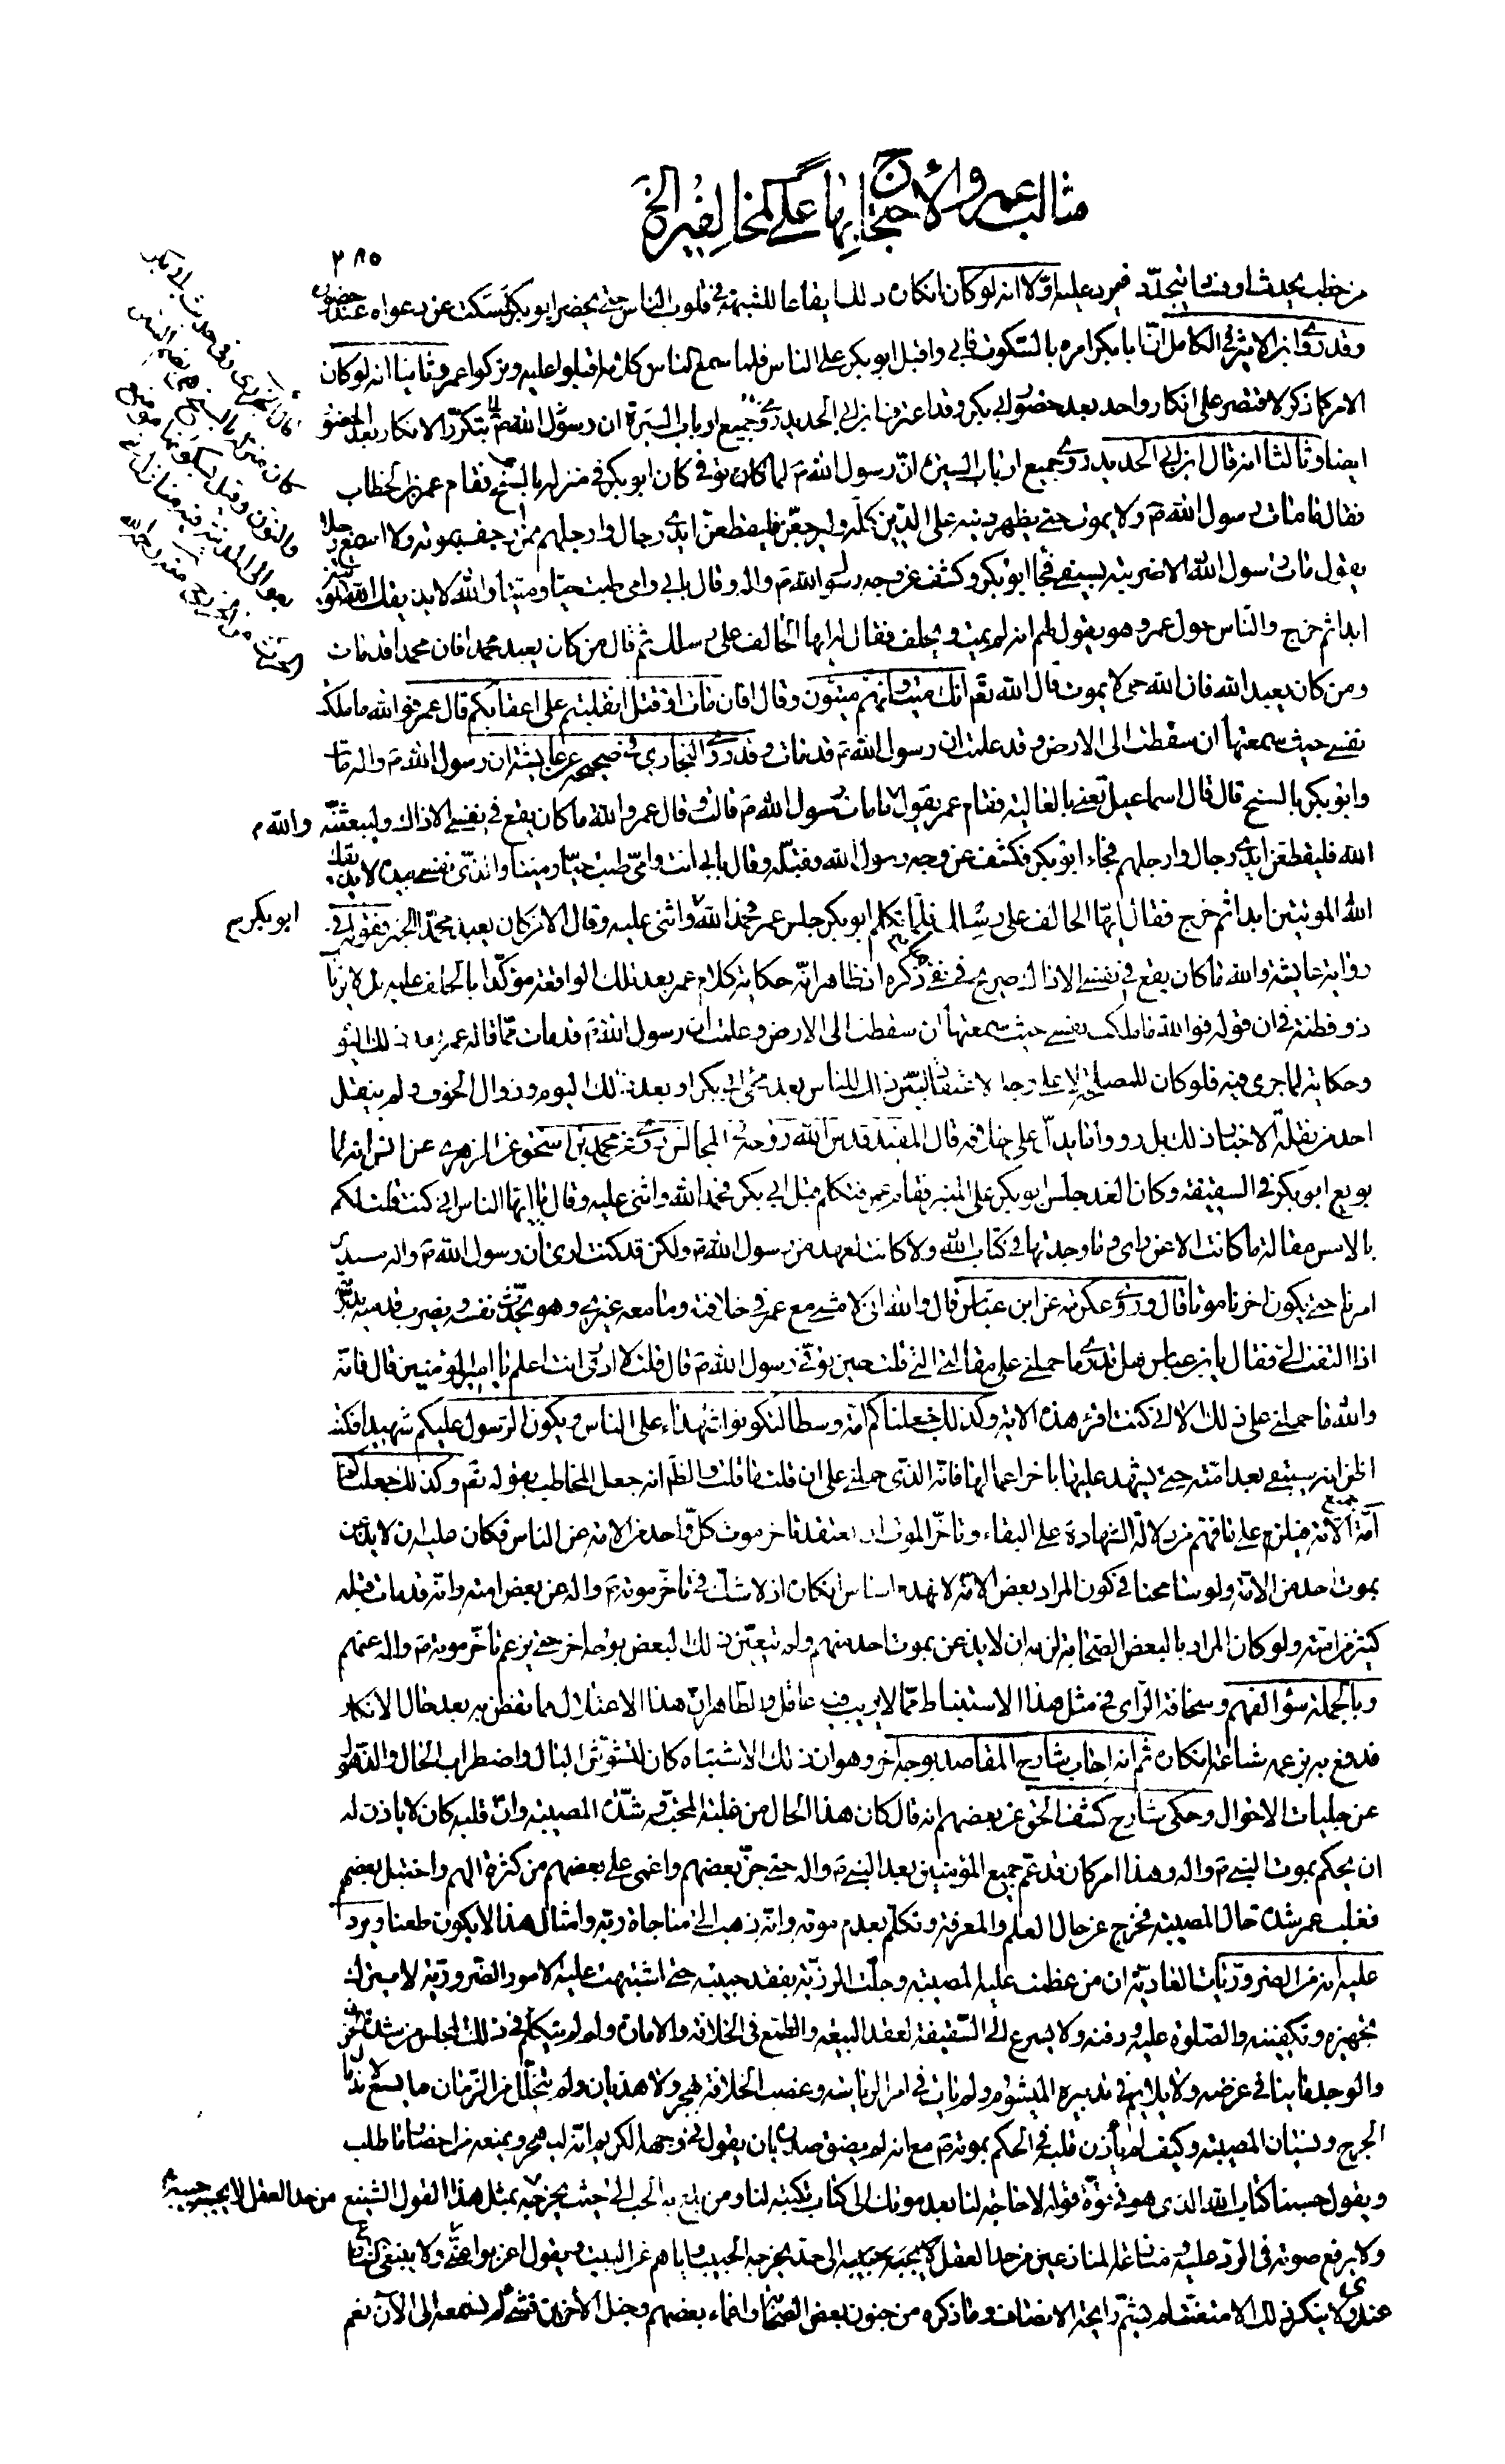 مثالب عمر والاحتجاج بها على المخالفين الخ
٢٨٥
من خطب يحدث او بنبأ يتجدّد فيرد عليه اوّلا انه لو كان انكاره ذلك ايقاعا للشبهة في قلوب الناس حتى يحضر ابو بكر لسكت عن دعواه عند حضوره
وقد روى ابن الاثير في الكامل انّ ابا بكر امره بالسّكوت فابى واقبل ابو بكر على الناس فلما سمع الناس كلامه اقبلوا عليه وتركوا عمر وثانيا انه لو كان
الامر كما ذكر لاقتصر على انكار واحد بعد حضور ابي بكر وقد اعترف ابن ابي الحديد بتكرّر الانكار بعد الحضور
ايضا وثالثا انه قال ابن ابي الحديد روى جميع ارباب السيرة انّ رسول الله ص لما توفي كان ابو بكر في منزله بالسنح فقام عمر بن الخطاب
فقال ما مات رسول الله ص ولا يموت حتى يظهر دينه على الدّين كلّه وليرجعنّ فليقطعنّ ايدي رجال وارجلهم ممّن ارجف بموته ولا اسمع رجلا
يقول مات رسول الله الا ضربته بسيفي فجاء ابو بكر وكشف عن وجه رسول الله ص واله وقال بابي وامي طبت حيّا وميّتا والله لا يذيقك الله الموتتين
ابدا ثم خرج والناس حول عمر وهو يقول لهم انه لم يمت ويحلف فقال له ايها الحالف على رسلك ثم قال من كان يعبد محمدا فان محمدا قد مات
ومن كان يعبد الله فان الله حي لا يموت قال الله تعم انّك ميّت وانّهم ميّتون وقال افان مات او قتل انقلبتم على اعقابكم قال عمر فوالله ما ملكت
نفسي حيث سمعتها ان سقطت الى الارض وقد علمت ان رسول الله ص قد مات وقد روى البخاري في صحيحه عن عايشة ان رسول الله ص واله مات
وابو بكر بالسنح قال قال اسماعيل تعني بالعالية فقام عمر يقول والله ما مات رسول الله ص قالت وقال عمر والله ما كان يقع في نفسي الا ذاك وليبعثنّه
الله فليقطعن ايدي رجال وارجلهم فجاء ابو بكر فكشف عن وجه رسول الله وقبّله وقال بابي انت وامّي طبت حيّا وميتا والّذي نفسي بيده لا يذيقك
الله الموتتين ابدا ثم خرج فقال ايّها الحالف على رسلك فلمّا تكلم ابو بكر جلس عمر فحمد الله ابو بكر واثنى عليه وقال الا من كان يعبد محمّدا الخبر فقوله في
رواية عايشة والله ما كان يقع في نفسي الا ذاك صريح في نفي ما ذكره اذ ظاهر انّه حكاية كلام عمر بعد تلك الواقعة مؤكّدا بالحلف عليه بل لا يرتاب
ذو فطنة في ان قوله فوالله ما ملكت نفسي حيث سمعتها ان سقطت الى الارض وعلمت ان رسول الله ص قد مات ممّا قاله عمر بعد ذلك اليوم
وحكاية لما جرى فيه فلو كان للمصلحة لا على وجه الاعتقاد لبيّن ذلك للناس بعد مجئ ابي بكر او بعد ذلك اليوم وزوال الخوف ولم ينقل
احد من نقلة الاخبار ذلك بل رووا ما يدلّ على خلافه قال المفيد قدس الله روحه في المجالس روى عن محمد بن اسحق عن الزهري عن انس انه لما
بويع ابو بكر في السقيفة وكان الغد جلس ابو بكر على المنبر فقام عمر فتكلم قبل ابي بكر فحمد الله واثنى عليه وقال يا ايّها الناس اني كنت قلت لكم
بالامس مقالة ما كانت الا عن رأي وما وجدتها في كتاب الله ولا كانت لعهد من رسول الله ص ولكن قد كنت ارى ان رسول الله ص واله سيدبّر
امرنا حتى يكون اخرنا موتا قال وروى عكرمة عن ابن عباس قال والله اني لامشي مع عمر في خلافته وما معه غيري وهو يحدّث نفسه ويضرب قدميه بدرّته
اذ التفت الىّ فقال يا بن عباس هل تدري ما حملني على مقالتي التي قلت حين توفّى رسول الله ص قال قلت لا ادري انت اعلم يا امير المؤمنين قال فانّه
والله ما حملني على ذلك الا اني كنت اقرأ هذه الاية وكذلك جعلناكم امّة وسطا لتكونوا شهداء على الناس ويكون الرّسول عليكم شهيدا فكنت
اظن انه سيبقى بعد امّته حتى يشهد عليها باخر اعمالها فانّه الّذي حملني على ان قلت ما قلت والظاهر انه جعل المخاطب بقوله تعم وكذلك جعلناكم
امّة جميع الامّة فيلزم على ما فهمه من دلالة الشهادة على البقاء وتأخّر الموت ان يعتقد تأخر موت كلّ واحد من الامة عن الناس فكان عليه ان لا يذعن
بموت احد من الامّة ولو سامحنا في كون المراد بعض الامّة لانهدم اساس انكاره اذ لا شكّ في تأخّر موته ص واله عن بعض امته وانّه قد مات قبله
كثير من امّته ولو كان المراد بالبعض الصّحابة لزمه ان لا يذعن بموت احد منهم ولم يتعيّن ذلك البعض بوجه اخر حتى يزعم تأخّر موته ص واله عنهم
وبالجملة سوء الفهم وسخافة الرّأي في مثل هذا الاستنباط ممّا لا يريب فيه عاقل والظّاهر انّ هذا الاعتذار انما تفطّن به بعد حال الانكار
فدفع به بزعمه شناعة انكاره ثم انه اجاب شارح المقاصد بوجه آخر وهو ان ذلك الاشتباه كان لتشوّش البال واضطراب الحال والذّهول
عن جليات الاحوال وحكى شارح كشف الحق عن بعضهم انه قال كان هذا الحال من غلبة المحبّة وشدّة المصيبة وانّ قلبه كان لا يأذن له
ان يحكم بموت النبي ص واله وهذا امر كان قد عمّ جميع المؤمنين بعد النبي ص واله حتى جنّ بعضهم واغمي على بعضهم من كثرة الهم واختبل بعضهم
فغلب عمر شدّة حال المصيبة فخرج عن حال العلم والمعرفة وتكلّم بعدم موته وانّه ذهب الى مناجاة ربّه وامثال هذا لا يكون طعنا ويرد
عليه انه من الضروريّات العاديّة ان من عظمت عليه المصيبة وجلّت الرزيّة بفقد حبيبه حتى اشتبهت عليه الامور الضروريّة لا يترك
تجهيزه وتكفينه والصّلوة عليه ودفنه ولا يسرع الى السّقيفة لعقد البيعة والطمع في الخلافة والامارة ولم لم يتكلّم في ذلك المجلس من شدّة الحزن
والوجد ما ينافي غرضه ولا يلايم تدبيره الميشوم ولم يأت في امر الرياسة وغصب الخلافة بهجر ولا هذيان ولم يتخلّل من الزّمان ما يسع لاندمال
الجرح ونسيان المصيبة وكيف لم يأذن قلبه في الحكم بموته ص مع انه لم يضق صدره بان يقول في وجهه الكريم انّه ليهجر ويمنعه من احضار ما طلب
ويقول حسبنا كتاب الله الذي هو في قوّة قوله لا حاجة لنا بعد موتك الى كتاب تكتبه لنا ومن بلغ به الحب الى حيث يخرجه من حد العقل لا يجبه حبيبه بمثل هذا القول الشنيع
ولا يرفع صوته في الرد عليه ومنازعة المنازعين من حد العقل الى حد يخرجه الحبيب واياهم عن البيت ويقول اعزبوا عني ولا ينبغي التنازع
عندي ولا ينكر ذلك الا متعنّت لم يشمّ رايحة الانصاف وما ذكره من جنون بعض الصحابة واغماء بعضهم وخبل الآخرين فشيء لم نسمعه الى الآن نعم